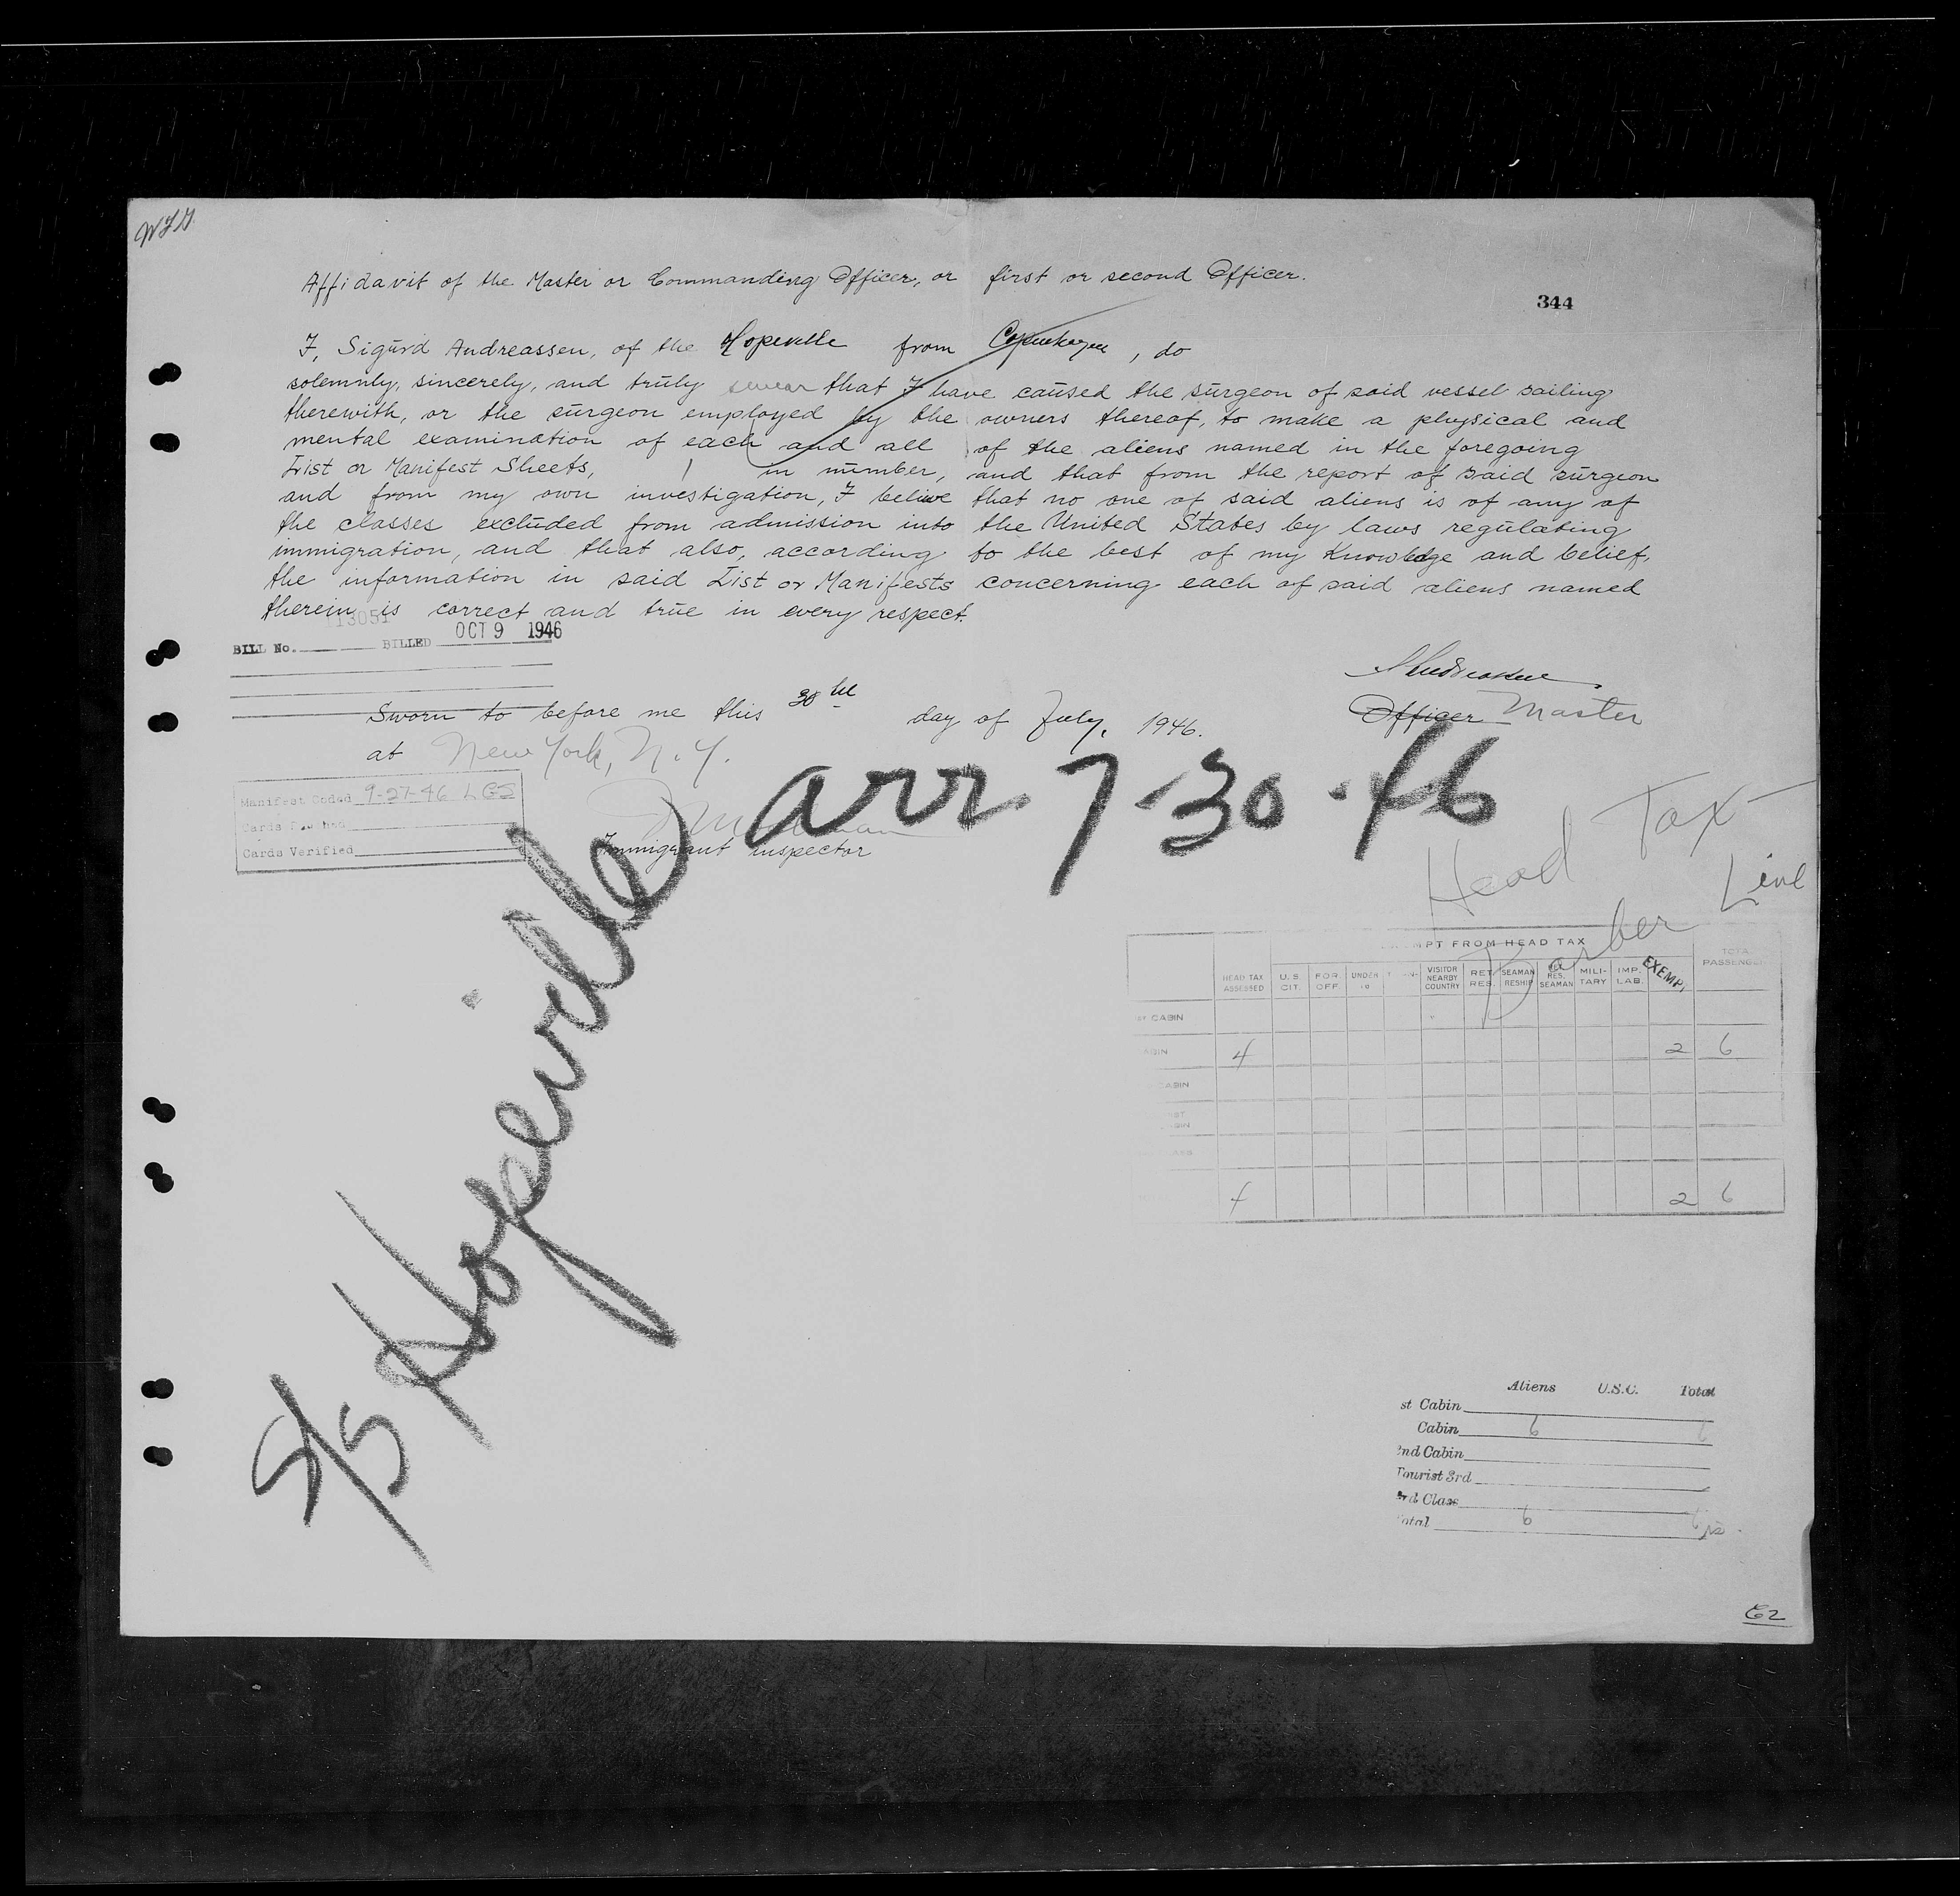 WFG
Affidavit of the Master or Commanding Officer, or first or second Officer.
344
I, Sigurd Andreassen, of the Hopeville from Copenhagen, do
solemnly, sincerely, and truly swear that I have caused the surgeon of said vessel sailing
therewith, or the surgeon employed by the owners thereof, to make a physical and
mental examination of each and all of the aliens named in the foregoing
List or Manifest Sheets, 1 in number, and that from the report of said surgeon
and from my own investigation, I belive that no one of said aliens is of any of
the classes excluded from admission into the United States by laws regulating
immigration, and that also, according to the best of my Knowledge and belief,
the information in said List or Manifests concerning each of said aliens named
therein is correct and true in every respect.
113051
BILL No. BILLED OCT 9 1946
SAndreassen
Sworn to before me this 30th day of July, 1946.
Officer Master
at New York, N.Y.
arr. 7-30-46
Manifest Coded 9-27-46 LGS
Cards Punched
Cards Verified
Immigrant inspector
Head Tax
Barber Line
S/S Hopeville
EXEMPT FROM HEAD TAX
HEAD TAX ASSESSED U.S. CIT. FOR. OFF. UNDER 16 VISITOR NEARBY COUNTRY RET. RES. SEAMAN RESHIP RET. RES. SEAMAN MILITARY IMP. LAB. EXEMPT TOTAL PASSENGERS
1ST CABIN
CABIN 4 2 6
CABIN
4 2 6
Aliens U.S.C. Total
st Cabin
Cabin 6 6
2nd Cabin
Tourist 3rd
3rd Class
Total 6 6